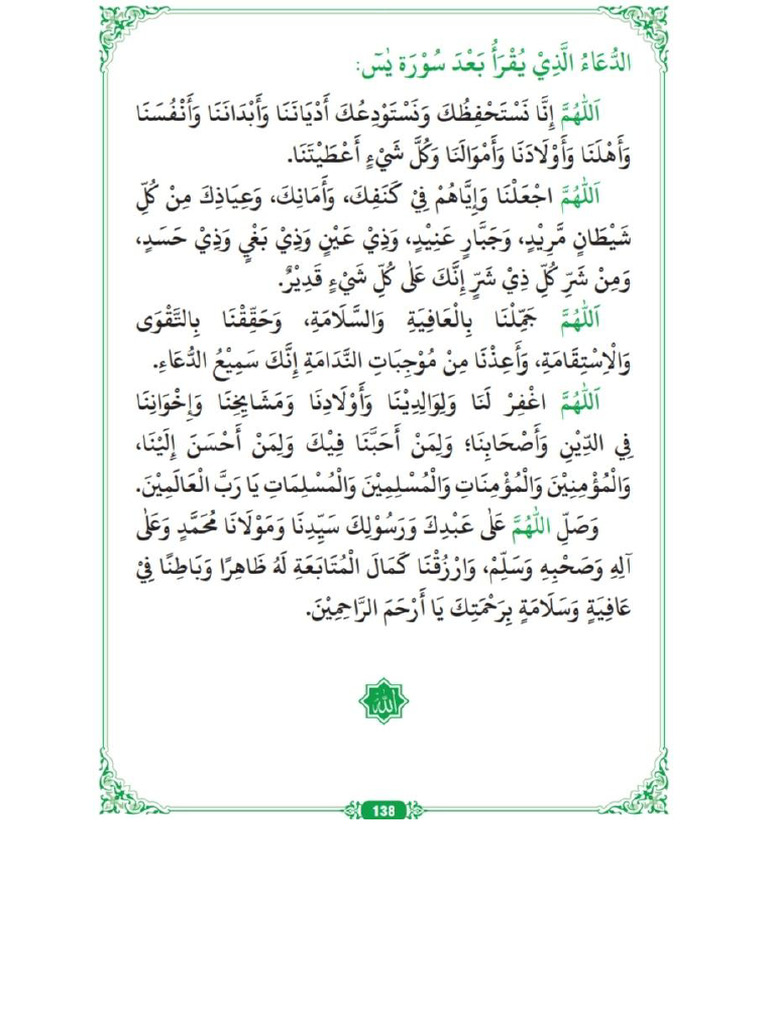 الدُّعَاءُ الَّذِيْ يُقْرَأُ بَعْدَ سُوْرَة يٰسٓ:
اَللّٰهُمَّ إِنَّا نَسْتَحْفِظُكَ وَنَسْتَوْدِعُكَ أَدْيَانَنَا وَأَبْدَانَنَا وَأَنْفُسَنَا
وَأَهْلَنَا وَأَوْلَادَنَا وَأَمْوَالَنَا وَكُلَّ شَيْءٍ أَعْطَيْتَنَا.
اَللّٰهُمَّ اجْعَلْنَا وَإِيَّاهُمْ فِيْ كَنَفِكَ، وَأَمَانِكَ، وَعِيَاذِكَ مِنْ كُلِّ
شَيْطَانٍ مَّرِيْدٍ، وَجَبَّارٍ عَنِيْدٍ، وَذِيْ عَيْنٍ وَذِيْ بَغْيٍ وَذِيْ حَسَدٍ،
وَمِنْ شَرِّ كُلِّ ذِيْ شَرٍّ إِنَّكَ عَلٰى كُلِّ شَيْءٍ قَدِيْرٌ.
اَللّٰهُمَّ جَمِّلْنَا بِالْعَافِيَةِ وَالسَّلَامَةِ، وَحَقِّقْنَا بِالتَّقْوَى
وَالْاِسْتِقَامَةِ، وَأَعِذْنَا مِنْ مُوْجِبَاتِ النَّدَامَةِ إِنَّكَ سَمِيْعُ الدُّعَاءِ.
اَللّٰهُمَّ اغْفِرْ لَنَا وَلِوَالِدِيْنَا وَأَوْلَادِنَا وَمَشَايِخِنَا وَإِخْوَانِنَا
فِي الدِّيْنِ وَأَصْحَابِنَا؛ وَلِمَنْ أَحَبَّنَا فِيْكَ وَلِمَنْ أَحْسَنَ إِلَيْنَا،
وَالْمُؤْمِنِيْنَ وَالْمُؤْمِنَاتِ وَالْمُسْلِمِيْنَ وَالْمُسْلِمَاتِ يَا رَبَّ الْعَالَمِيْنَ.
وَصَلِّ اللّٰهُمَّ عَلٰى عَبْدِكَ وَرَسُوْلِكَ سَيِّدِنَا وَمَوْلَانَا مُحَمَّدٍ وَعَلٰى
آلِهِ وَصَحْبِهِ وَسَلِّمْ، وَارْزُقْنَا كَمَالَ الْمُتَابَعَةِ لَهُ ظَاهِرًا وَبَاطِنًا فِيْ
عَافِيَةٍ وَسَلَامَةٍ بِرَحْمَتِكَ يَا أَرْحَمَ الرَّاحِمِيْنَ.
الله
138